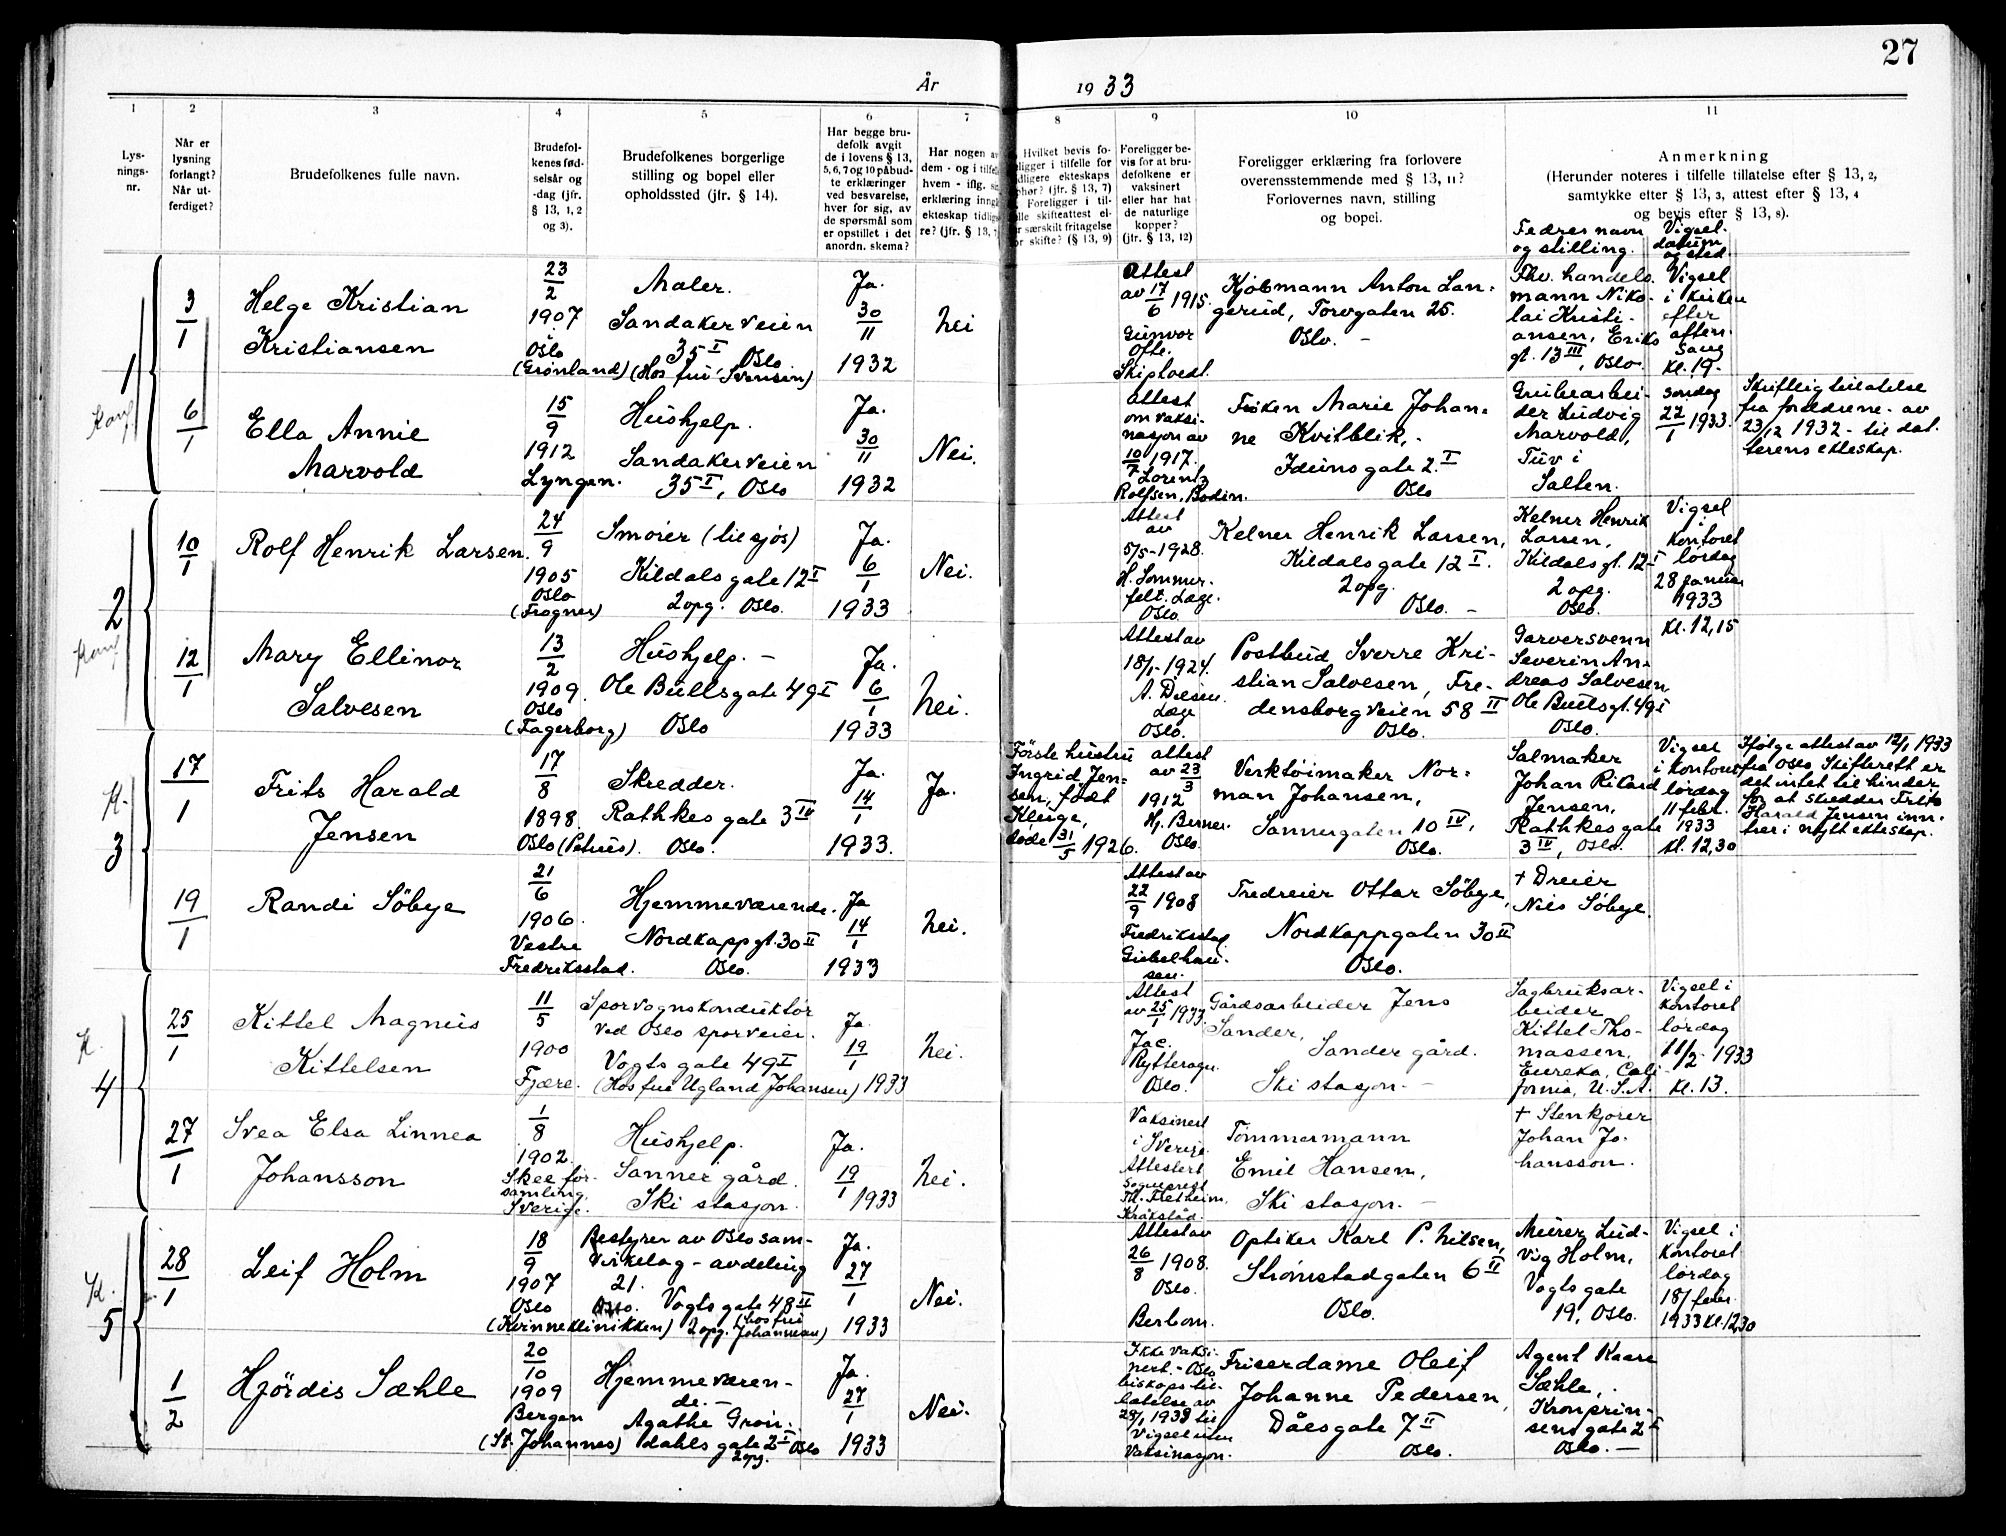 27
År 1933
1
2
3
4
5
6
7
8
9
10
11
Lys-
nings-
nr.
Når er
lysning
forlangt?
Når ut-
ferdiget?
Brudefolkenes fulle navn.
Brudefol-
kenes fød-
selsår og
-dag (jfr.
§ 13, 1, 2
og 3).
Brudefolkenes borgerlige
stilling og bopel eller
opholdssted (jfr. § 14).
Har begge bru-
defolk avgit
de i lovens § 13,
5, 6, 7 og 10 påbud-
te erklæringer
ved besvarelse,
hver for sig, av
de spørsmål som
er opstillet i det
anordn. skema?
Har nogen av
dem - og i tilfelle
hvem - iflg.
erklæring inng
ekteskap tidlig
re? (jfr. § 13, 7
Hvilket bevis fo-
religger i tilfelle for
tidligere ekteskaps
ophør? (jfr. § 13, 7)
Foreligger i til-
felle skifteattest el-
ler særskilt fritagelse
for skifte? (§ 13, 9)
Foreligger be-
vis for at bru-
defolkene er
vaksinert
eller har hat
de naturlige
kopper?
(jfr. § 13, 12)
Foreligger erklæring fra forlovere
overensstemmende med § 13, 11?
Forlovernes navn, stilling
og bopel.
Anmerkning
(Herunder noteres i tilfelle tillatelse efter § 13, 2,
samtykke efter § 13, 3, attest efter § 13, 4
og bevis efter § 13, 8).
Fedres navn
og stilling.
Vigsel-
datum
og sted.
1
3/1
Helge Kristian
Kristiansen
23/2
1907
Oslo
(Grønland)
Maler.
Sandakerveien
35 I Oslo
(Hos fru Svensen)
Ja.
30/11
1932
Nei
Attest
av 17/6 1915.
Gunvor
Ofte.
Skiptvedt.
Kjøbmann Anton Lan-
gerud, Torvgaten 25.
Oslo. -
Fhv. handels-
mann Niko-
lai Kristi-
ansen, Eriks
gt. 13 III, Oslo.
Vigsel
i kirken
efter
aften-
sang
kl. 19.
6/1
Ella Annie
Marvold
15/9
1912
Lyngen.
Hushjelp.
Sandakerveien
35 I, Oslo
Ja.
30/11
1932
Nei.
Attest
om vaksi-
nasjon av
10/7 1917.
Lorentz
Rolfsen, Bodin.
Frøken Marie Johan-
ne Kvitblik,
Iduns gate 2 I
Oslo
Grubearbei-
der Ludvig
Marvold,
Tuv i
Salten.
søndag
22/1 1933.
Skriftlig tillatelse
fra foreldrene av
23/12 1932 - til dat-
terens ekteskap.
2
10/1
Rolf Henrik Larsen.
24/9
1905
Oslo
(Frogner)
Smører (til sjøs)
Kildals gate 12 I
2 opg. Oslo.
Ja.
6/1
1933
Nei.
Attest
av
5/5-1928.
H. Sommer-
felt. Læge.
Oslo.
Kelner Henrik Larsen,
Kildals gate 12 I.
2 opg.
Oslo. -
Kelner Henrik
Larsen,
Kildals gt. 12 I
2 opg.
Oslo.
Vigsel
i
kontoret
lørdag
28 januar
1933
kl. 12,15
12/1
Mary Ellinor
Salvesen
13/2
1909.
Oslo
(Fagerborg)
Hushjelp. -
Ole Bulls gate 49 I
Oslo
Ja.
6/1
1933
Nei.
Attest av
18/1-1924.
A. Diesen
Læge
Oslo.
Postbud Sverre Kri-
stian Salvesen, Fre-
densborgveien 58 II
Oslo.
Garversvenn
Severin An-
dreas Salvesen,
Ole Bulls gt. 49 I
Oslo.
K.
3
17/1
Frits Harald
Jensen
17/8
1898.
Oslo (Petrus).
Skredder.
Rathkes gate 3 IV
Oslo.
Ja.
14/1
1933.
Ja.
Første hustru
Ingrid Jen-
sen, født
Kluge,
døde 31/5 1926.
attest
av 23/3
1912
Hj. Berner.
Oslo.
Verktøimaker Nor-
man Johansen,
Sannergaten 10 IV,
Oslo.
Salmaker
Johan Rikard
Jensen,
Rathkes gate
3 IV, Oslo.
Vigsel
i kontoret
lørdag
11 febr.
1933
kl. 12,30
Ifølge attest av 12/1 1933
fra Oslo Skifterett er
det intet til hinder
for at skredder Frits
Harald Jensen inn-
trer i nytt ekteskap.
19/1
Randi Söbye
21/6
1906.
Vestre
Fredriksstad.
Hjemmeværende.
Nordkappgt. 30 II
Oslo.
Ja
14/1
1933
Nei.
Attest av
22/9 1908
Fredriksstad
Giebelhau-
sen.
Tredreier Ottar Söbye,
Nordkappgaten 30 II
Oslo.
+ Dreier
Nils Söbye.
K.
4
25/1
Kittel Magnus
Kittelsen
11/5
1900
Fjære.
Sporvognskonduktør
ved Oslo sporveier.
Vogts gate 49 I
(Hos fru Ugland Johansen)
Ja
19/1
1933
Nei.
Attest
av 25/1 1933
Jac.
Rytteragr.
Oslo.
Gårdsarbeider Jens
Sander,
Sander gård.
Ski stasjon. -
Sagbruksar-
beider
Kittel Tho-
massen,
Eureka, Cali-
fornia, U.S.A.
Vigsel i
kontoret
lørdag
11/2 - 1933
kl. 13.
27/1
Svea Elsa Linnea
Johansson
1/8
1902.
Skee för-
samling,
Sverige.
Hushjelp.
Sanner gård.
Ski stasjon.
Ja.
19/1
1933
Nei.
Vaksinert
i Sverige.
Attestert
Sogneprest
Th. Fretheim,
Kråkstad.
Tømmermann
Emil Hansen,
Ski stasjon. -
+ Stenkjører
Johan Jo-
hansson.
K.
5
28/1
Leif Holm
18/9
1907
Oslo
(Kvinneklinikken)
Bestyrer av Oslo sam-
virkelag - avdeling
21.
Oslo. Vogts gate 48 II
2 opg. (hos fru Johannesen)
Ja.
27/1
1933
Nei.
Attest av
26/8 1908.
Oslo.
Berbom.
Optiker Karl P. Nilsen,
Strømstadgaten 6 II
Oslo.
Murer Lud-
vig Holm,
Vogts gate
19, Oslo.
Vigsel i
kontoret
lørdag
18/ febr.
1933 kl. 12,30
1/2
Hjördis Sæhle
20/10
1909
Bergen
(St. Johannes)
Hjemmeværen-
de. -
Agathe Grøn-
dahls gate 2 I Oslo
2 opg.
Ja.
27/1
1933
Nei.
Ikke vaksi-
nert. - Oslo
biskops til-
latelse av
28/1 1933 til
vigsel uten
vaksinasjon.
Friserdame Oleif
Johanne Pedersen,
Dåesgate 7 II
Oslo.
Agent Kaare
Sæhle,
Kronprin-
sens gate 2
Oslo. -